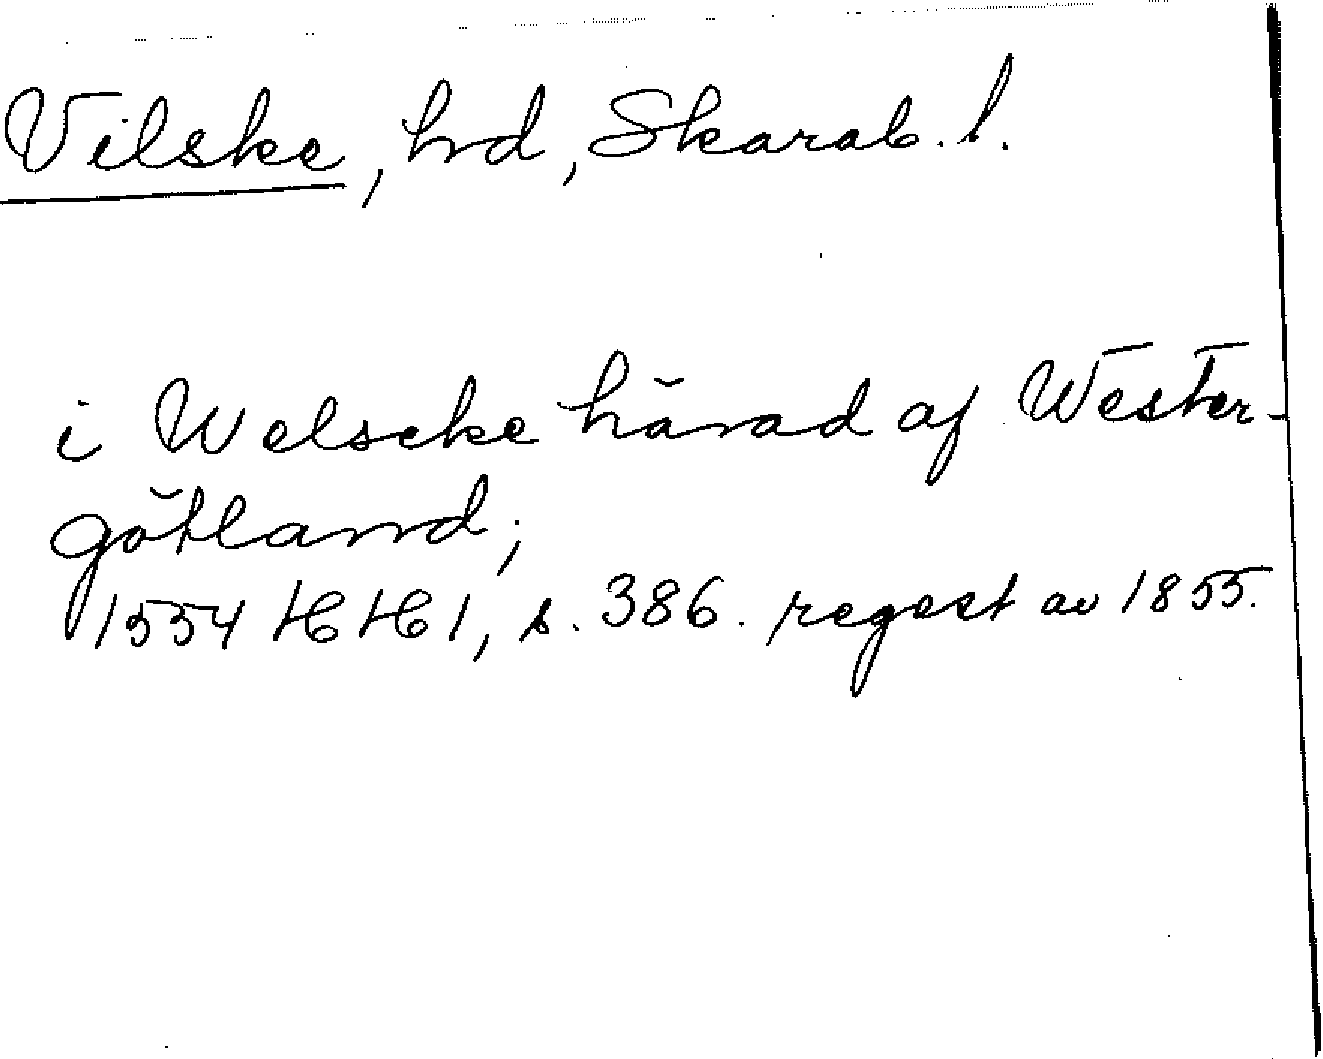 Vilske, hrd, Skarab. l.
i Welscke härad af Wester-
götland;
1554 HH 1, s. 386. regest av 1855.